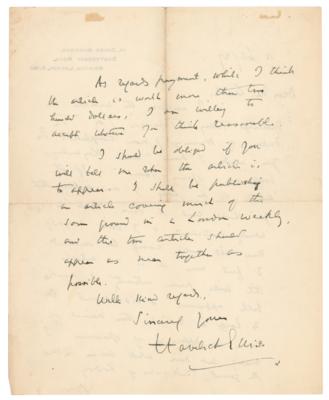 14, DOVER MANSIONS,
CANTERBURY ROAD,
BRIXTON, LONDON, S.W.9
As regards payment, while I think
the article is worth more than two
hundred dollars, I am willing to
accept whatever you think reasonable.
I should be obliged if you
will tell me when the article is
to appear. I shall be publishing
an article covering much of the
same ground in a London weekly,
and the two articles should
appear as near together as
possible.
With kind regards,
Sincerely yours
Havelock Ellis